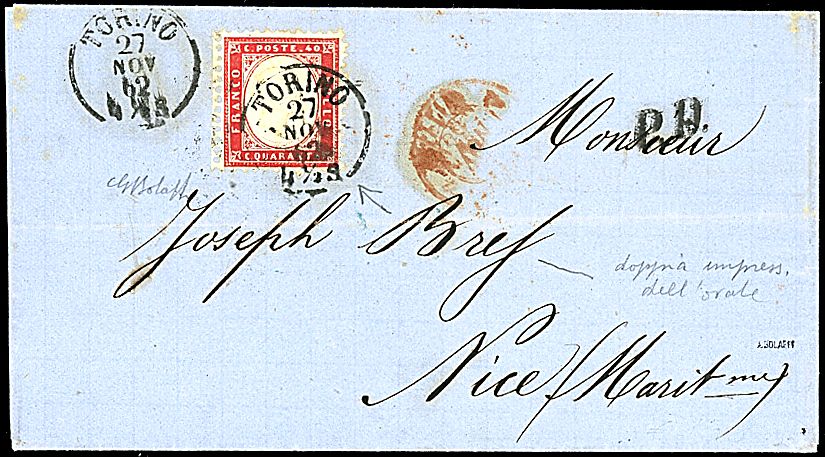 TORINO
27
NOV
62
C. POSTE. 40
FRANCO
C. QUARANTA
TORINO
27
NOV
4½S
P.D.
Monsieur
Joseph Bref
Nice (Marit mes)
doppia impress.
dell'ovale
A. BOLAFFI